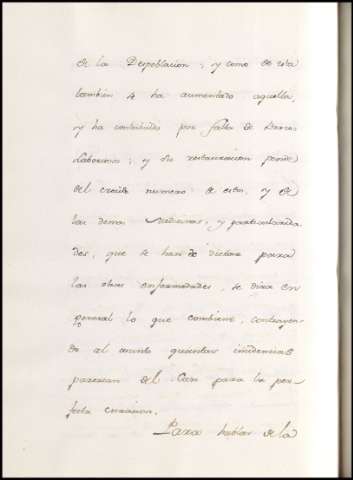 de la Despoblacion; y como de esta
tambien se ha aumentado aquella,
y ha contribuido por falta de brazos
Laborioso; y su restauracion pende
del crecido numero de estos, y de
las demas Medicinas, y particularida
des, que se han de dictar para
las otras enfermedades, se dira en
general lo que combiene, contrayen
do al asunto quantas insidencias
parezcan del Caso para la per
fecta curacion.
Para hablar de la